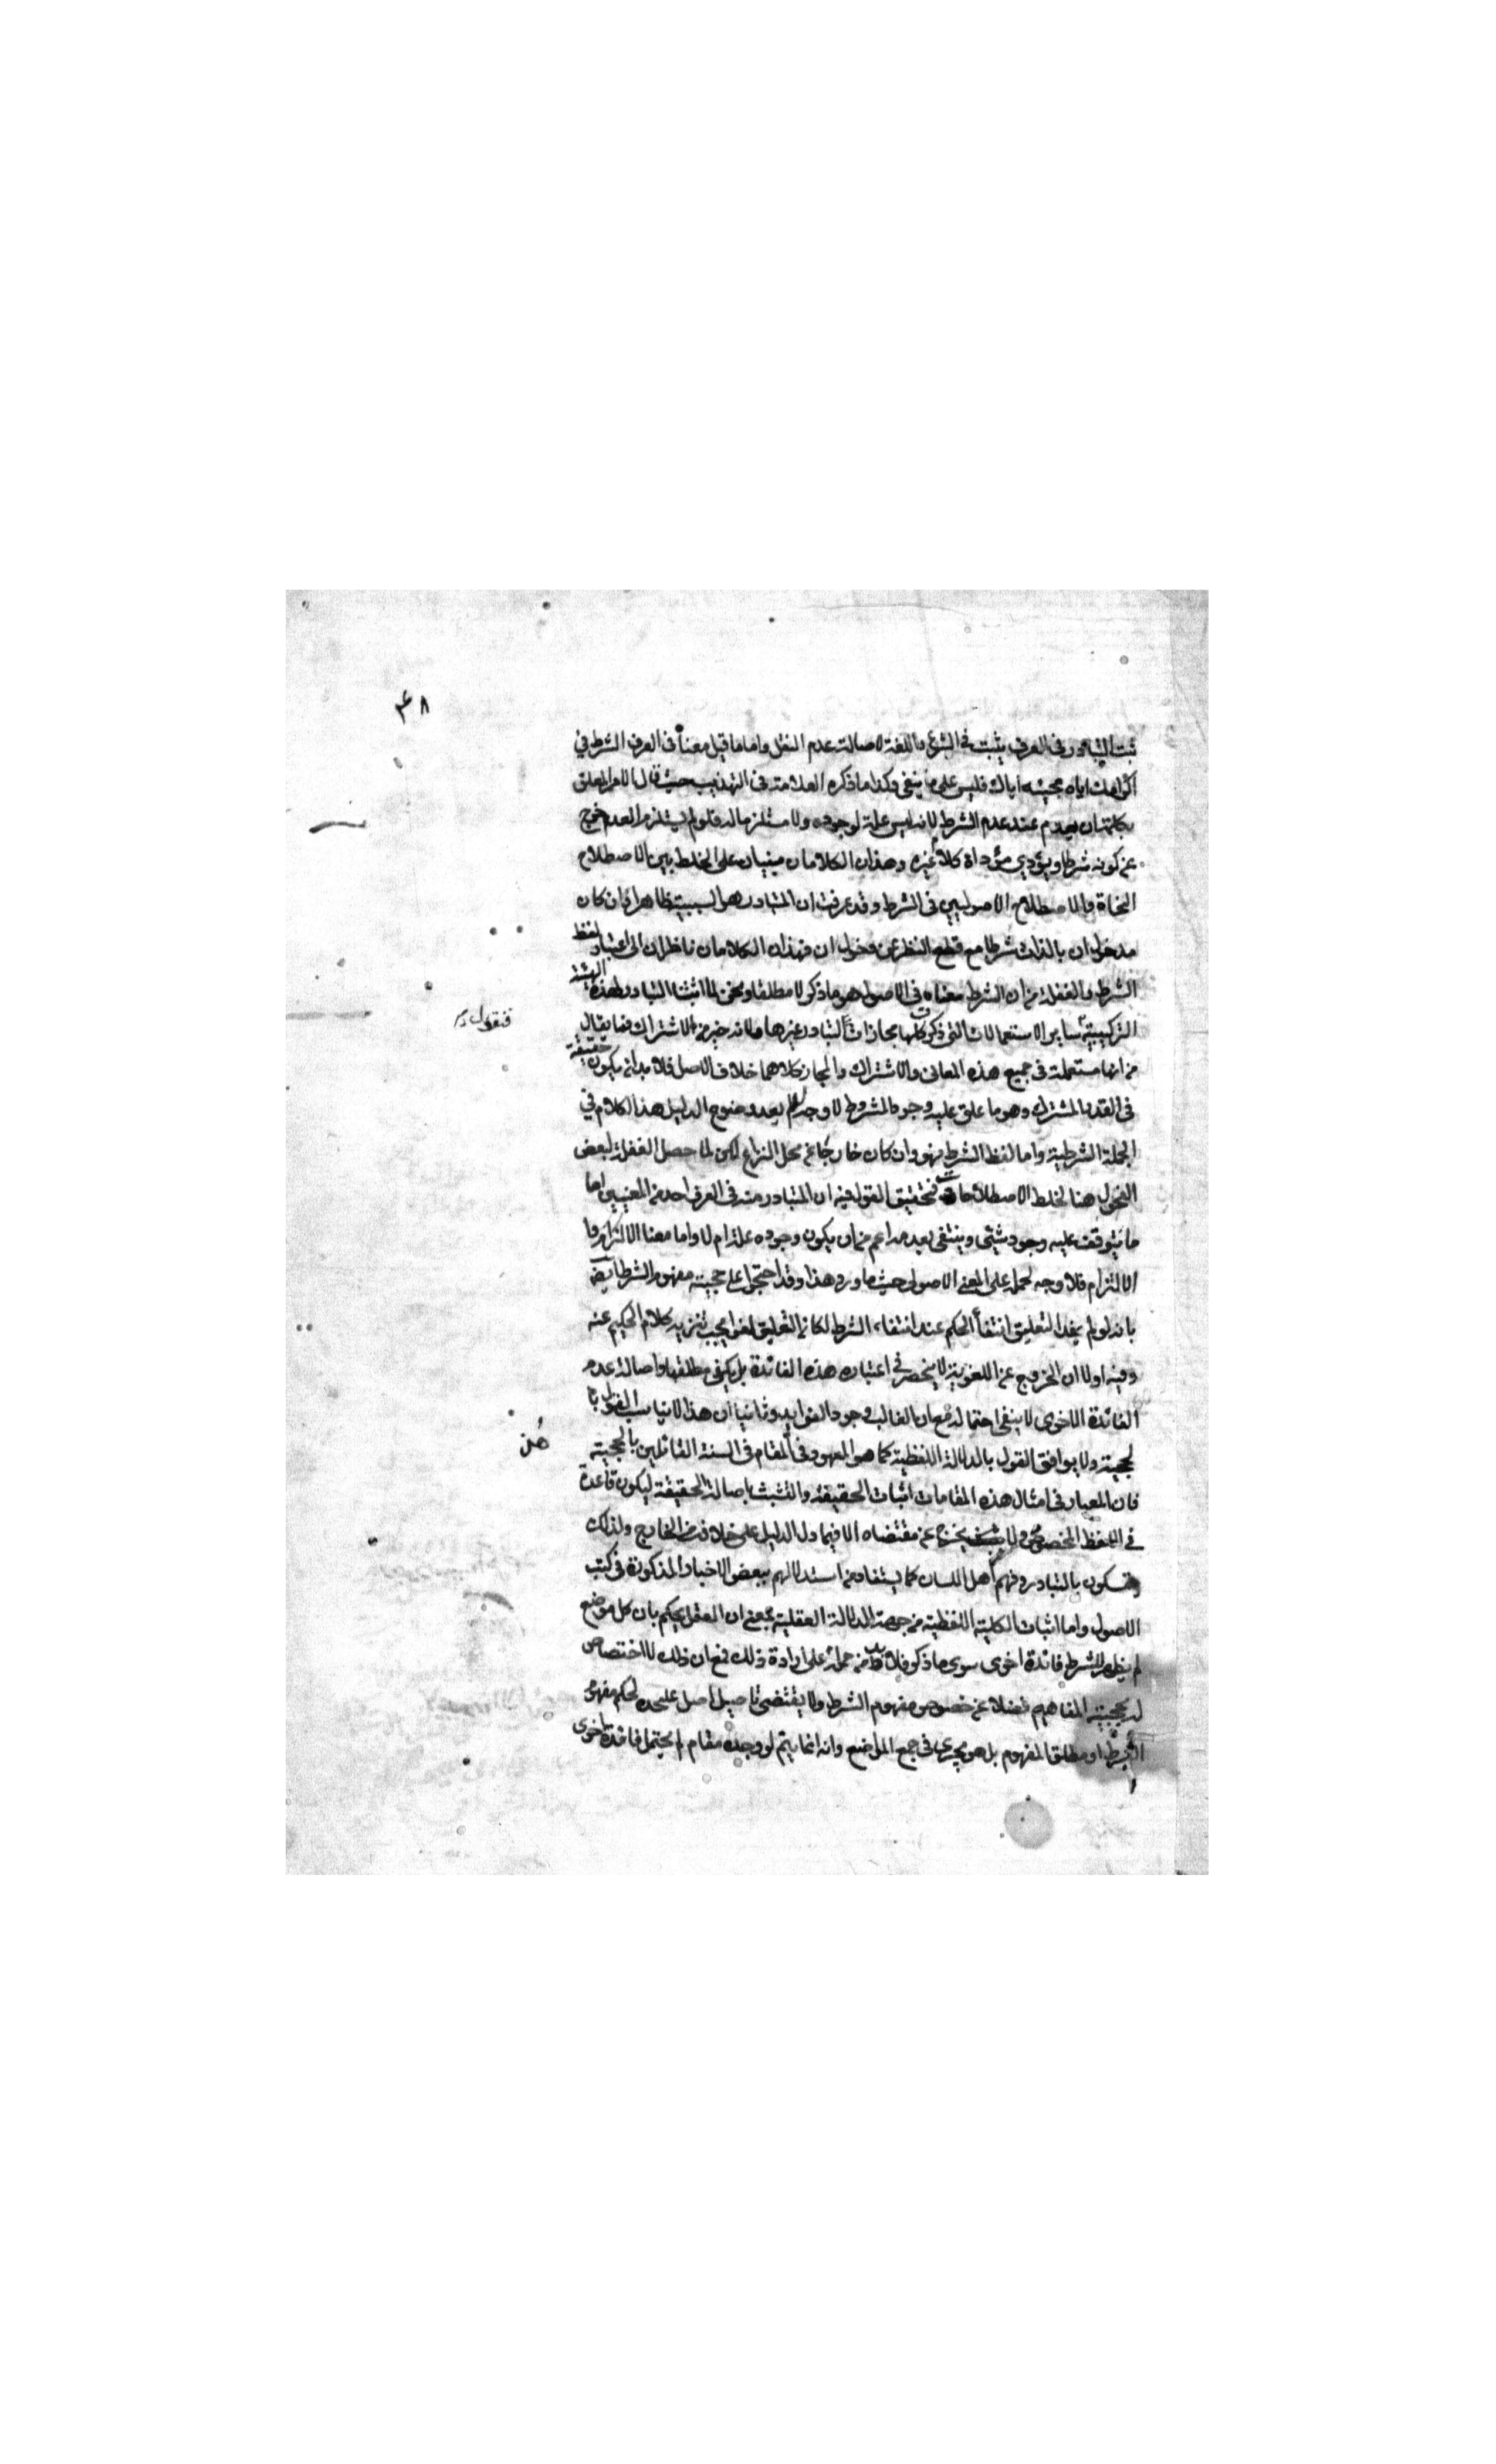 ۴۸
ثبت التبادر فى العرف يثبت فى الشرع واللغة لاصالة عدم النقل واما ما قيل معناه فى العرف الشرط فى
اكرامك اياه مجيئه اياك فليس على ما ينبغى وكذا ما ذكره العلامة فى التهذيب حيث قال الامر المعلق
بكلمة ان يعدم عند عدم الشرط لانه ليس علة لوجوده ولا مستلزما له فلو لم يستلزم العدم خرج
عن كونه شرطا ويؤدي مؤداه كلام غيره وهذان الكلامان مبنيان على الخلط بين الاصطلاح
النحاة والاصطلاح الاصوليين فى الشرط وقد عرفت ان المتبادر هو السببية ظاهرا وان كان
مدخول ان بالذات شرطا مع قطع النظر عن دخول ان فهذان الكلامان ناظران الى اعتبار لفظ
الشرط والغفلة من ان الشرط معناه فى الاصول هو ما ذكر لا مطلقا ونحن لما اثبتنا التبادر لهذه الهيئة
فنقول
التركيبية سائر الاستعمالات التى ذكر كلها مجازات لتبادر غيرها ولانه خير من الاشتراك فما يقال
من انها مستعملة فى جميع هذه المعانى والاشتراك والمجاز كلاهما خلاف الاصل فلا بد ان يكون حقيقة
فى القدر المشترك وهو ما علق عليه وجود المشروط لا وجه له بعد وضوح الدليل هذا الكلام فى
الجملة الشرطية واما لفظ الشرط فهو وان كان خارجا عن محل النزاع لكن لما حصل الغفلة لبعض
الفحول هنا لخلط الاصطلاحات فتحقيق القول فيه ان المتبادر منه فى العرف احد من المعنيين اما
ما يتوقف عليه وجود شئى وينتفى بعدمه اعم من ان يكون وجوده علة ام لا واما معنا الالزام وا
الالتزام فلا وجه لحمله على المعنى الاصولى حيث ما ورد هذا وقد احتجوا على حجية مفهوم الشرط ايضا
بانه لو لم يفد التعليق انتفاء الحكم عند انتفاء الشرط لكان التعليق لغوا يجب تنزيه كلام الحكيم عنه
وفيه اولا ان الخروج عن اللغوية لا ينحصر فى اعتبار هذه الفائدة بل يكفى مطلقها واصالة عدم
الفائدة الاخرى لا ينفى احتماله مع ان الغالب وجود الفوايد وثانيا ان هذا لا يناسب القول با
لحجية ولا يوافق القول بالدلالة اللفظية كما هو المعهود فى المقام فى السنة القائلين بالحجية
فان المعيار فى امثال هذه المقامات اثبات الحقيقة والتشبث باصالة الحقيقة ليكون قاعدة
فى اللفظ المخصوص ولا يخرج عن مقتضاه الا فيما دل الدليل على خلافه من الخارج ولذلك
يتمسكون بالتبادر وفهم اهل اللسان كما يستفاد من استدلالهم ببعض الاخبار المذكورة فى كتب
الاصول واما اثبات الكلية اللفظية من جهة الدلالة العقلية بمعنى ان العقل يحكم بان كل موضع
لم يظهر للشرط فائدة اخرى سوى ما ذكر فلا بد من حمله على ارادة ذلك فمع ان ذلك لا اختصاص
له بحجية المفاهيم فضلا عن خصوص مفهوم الشرط ولا يقتضى تاصيل اصل عليحده لحكم مفهوم
الشرط او مطلق المفهوم بل هو يجرى فى جميع المواضع وانه انما يتم لو وجد مقام لم يحتمل فائدة اخرى